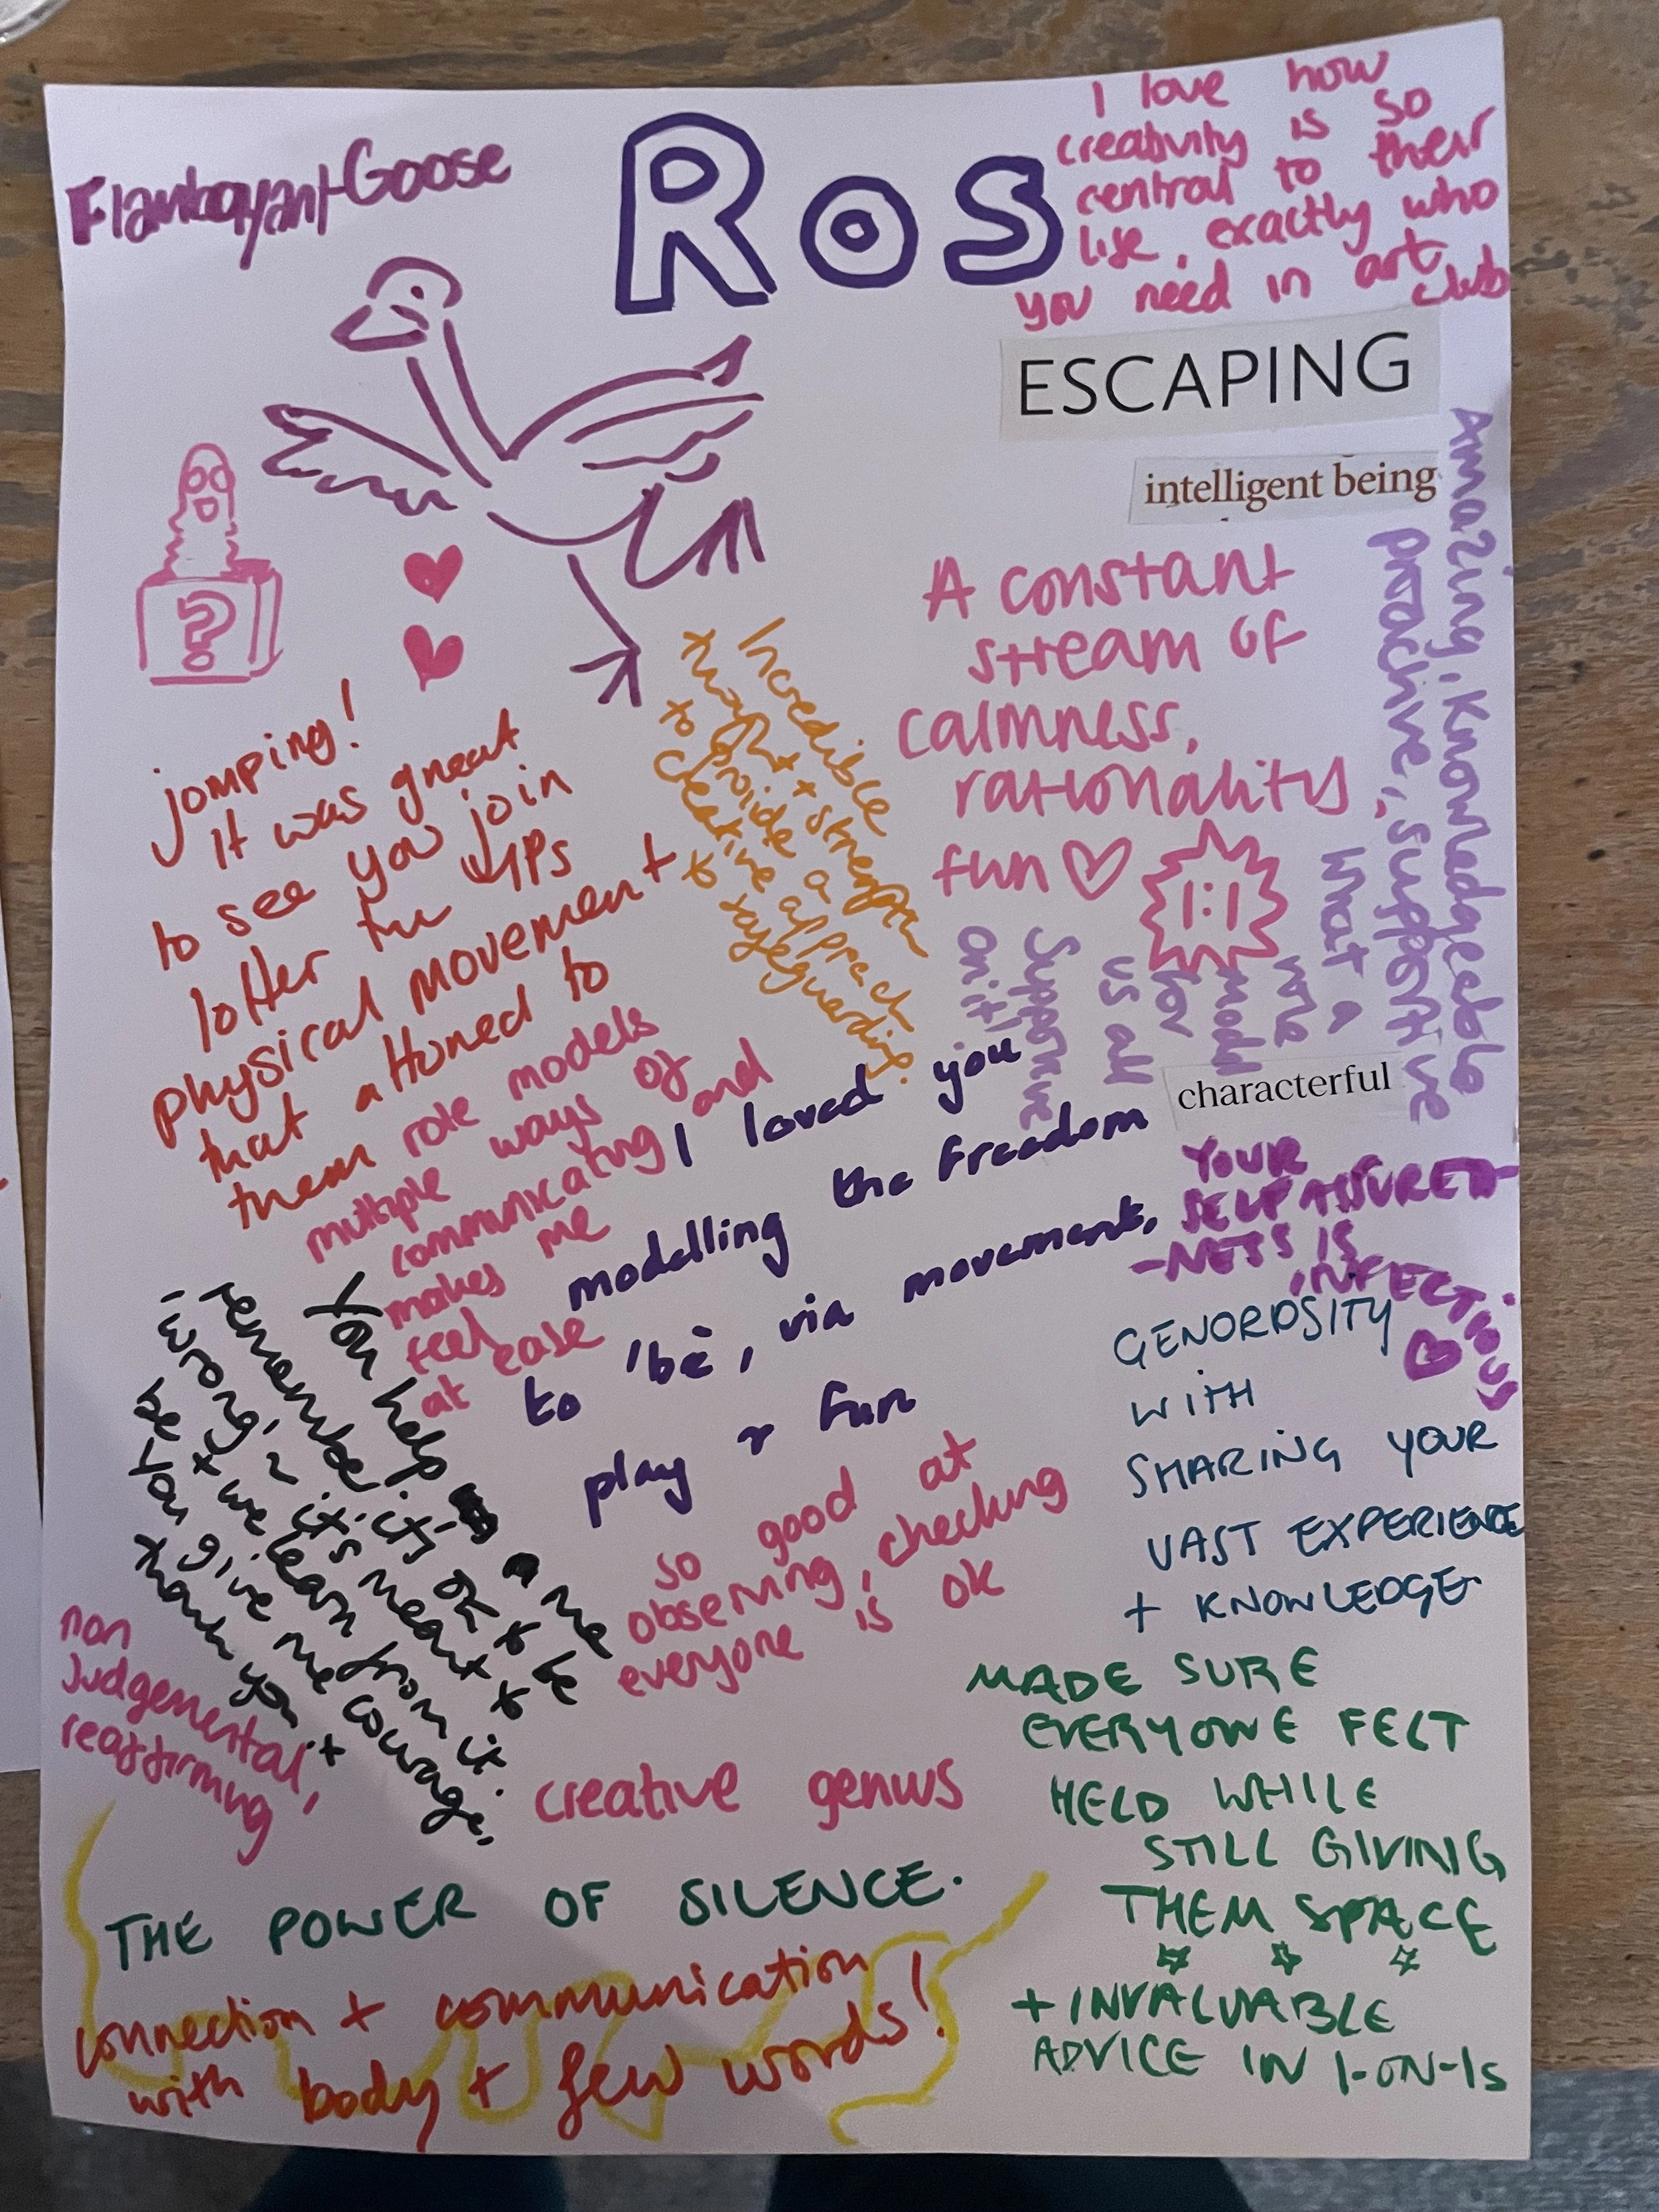 Flamboyant Goose
Ros
I love how
creativity is so
central to their
life, exactly who
you need in art
club
ESCAPING
intelligent being
?
A constant
stream of
calmness,
rationality,
fun
1:1
Amazing, Knowledgeable
proactive, supportive
What a
role
model
for
us all
Supportive
on it!
Incredible
thought + strength
to provide a
creative approach
to safeguarding.
jomping!
It was great
to see you join
lotter in VIPs
physical movement +
that attoned to
them
role models
multiple ways of
communicating and
makes me
feel
at ease
characterful
I loved you
modelling the freedom
to 'be', via movement,
play & fun
YOUR
SELF ASSURED
-NESS IS
INFECTIOUS
GENOROSITY
WITH
SHARING YOUR
VAST EXPERIENCE
+ KNOWLEDGE
You help me
remember it's ok to be
'wrong', it's meant to
be + we learn from it.
You give me courage,
thank you +
so good at
observing, checking
everyone is ok
non
Judgemental,
reaffirming
creative genius
MADE SURE
EVERYONE FELT
HELD WHILE
STILL GIVING
THEM SPACE
+ INVALUABLE
ADVICE IN 1-ON-1s
THE POWER OF SILENCE.
connection + communication
with body + few words!